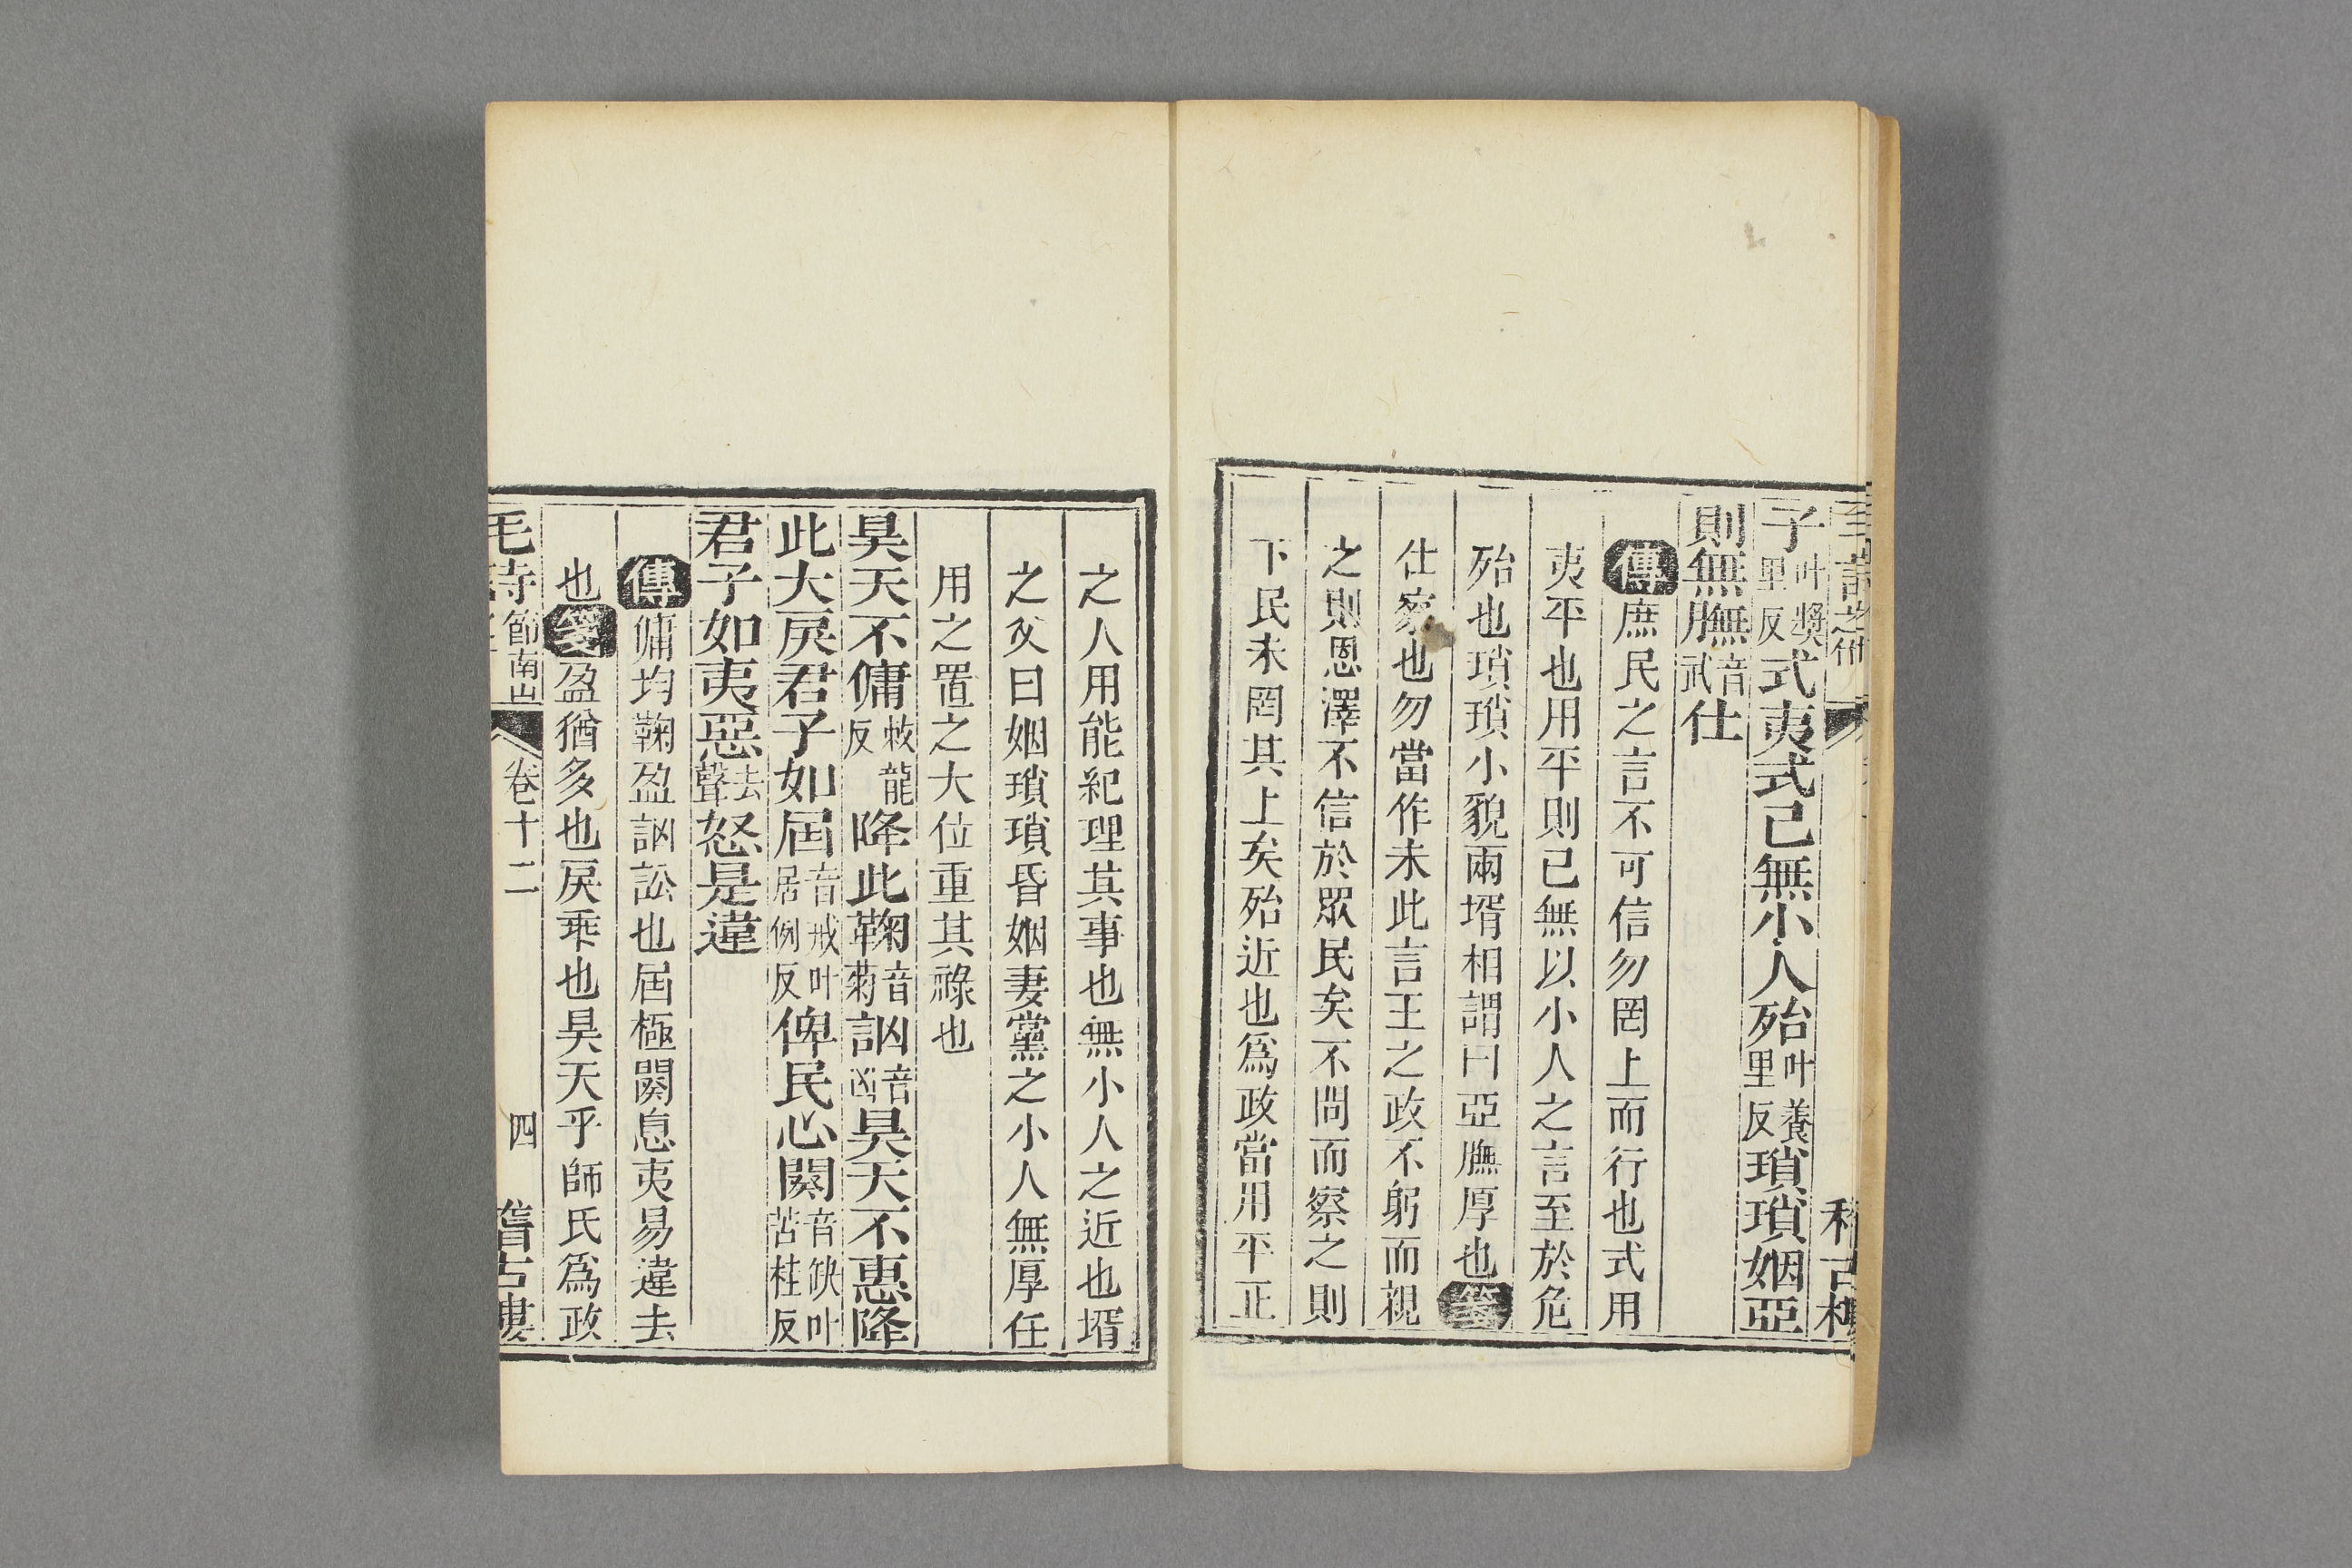 子叶獎里反式夷式已無小人殆叶養里反瑣瑣姻亞
則無膴音武仕
傳庶民之言不可信勿罔上而行也式用
夷平也用平則已無以小人之言至於危
殆也瑣瑣小貌兩壻相謂曰亞膴厚也箋
仕察也勿當作末此言王之政不躬而親
之則恩澤不信於眾民矣不問而察之則
下民未罔其上矣殆近也爲政當用平正
之人用能紀理其事也無小人之近也壻
之父曰姻瑣瑣昏姻妻黨之小人無厚任
用之置之大位重其祿也
昊天不傭敕龍反降此鞠音菊訩音凶昊天不惠降
此大戾君子如屆音戒叶居例反俾民心闋音缺叶苦桂反
君子如夷惡去聲怒是違
傳傭均鞠盈訩訟也屆極闋息夷易違去
也箋盈猶多也戾乖也昊天乎師氏爲政
節南山
卷十二
四